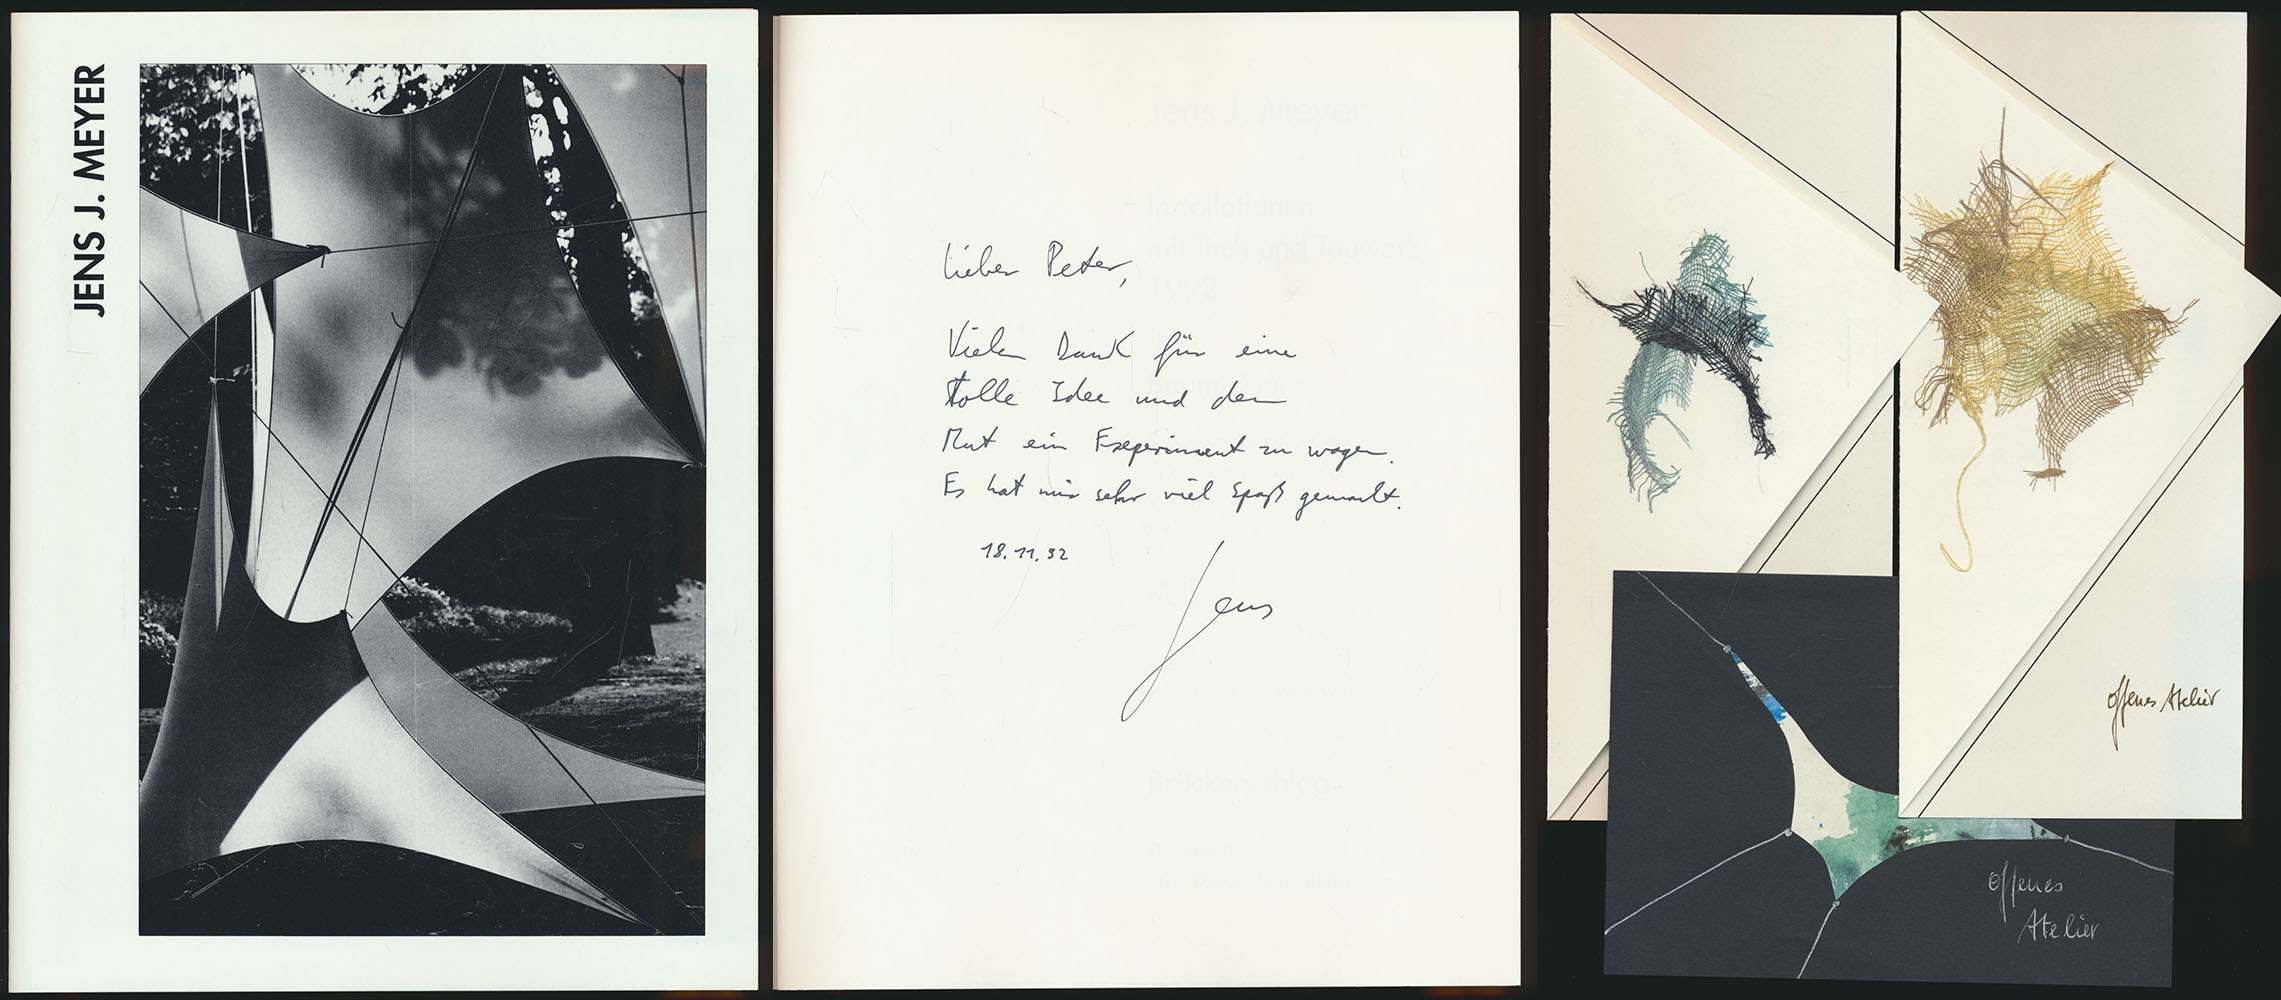 JENS J. MEYER
Lieber Peter,
Vielen Dank für eine
tolle Idee und den
Mut ein Experiment zu wagen.
Es hat mir sehr viel Spaß gemacht.
18.11.92
Jens
Jens J. Meyer
Installationen
mit Tuch und Tauwerk
1992
Brückenschlag
offenes Atelier
offenes
Atelier